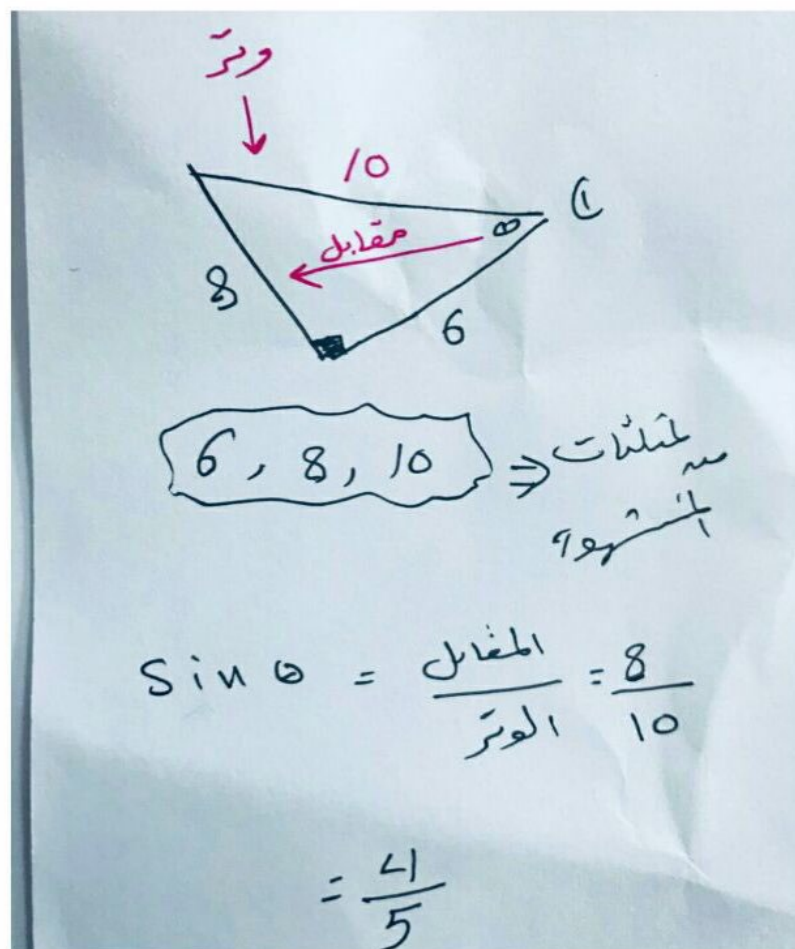 وتر
10
①
θ
مقابل
8
6
6, 8, 10 ⇒ من المثلثات
المشهورة
Sin θ = المقابل / الوتر = 8 / 10
= 4 / 5